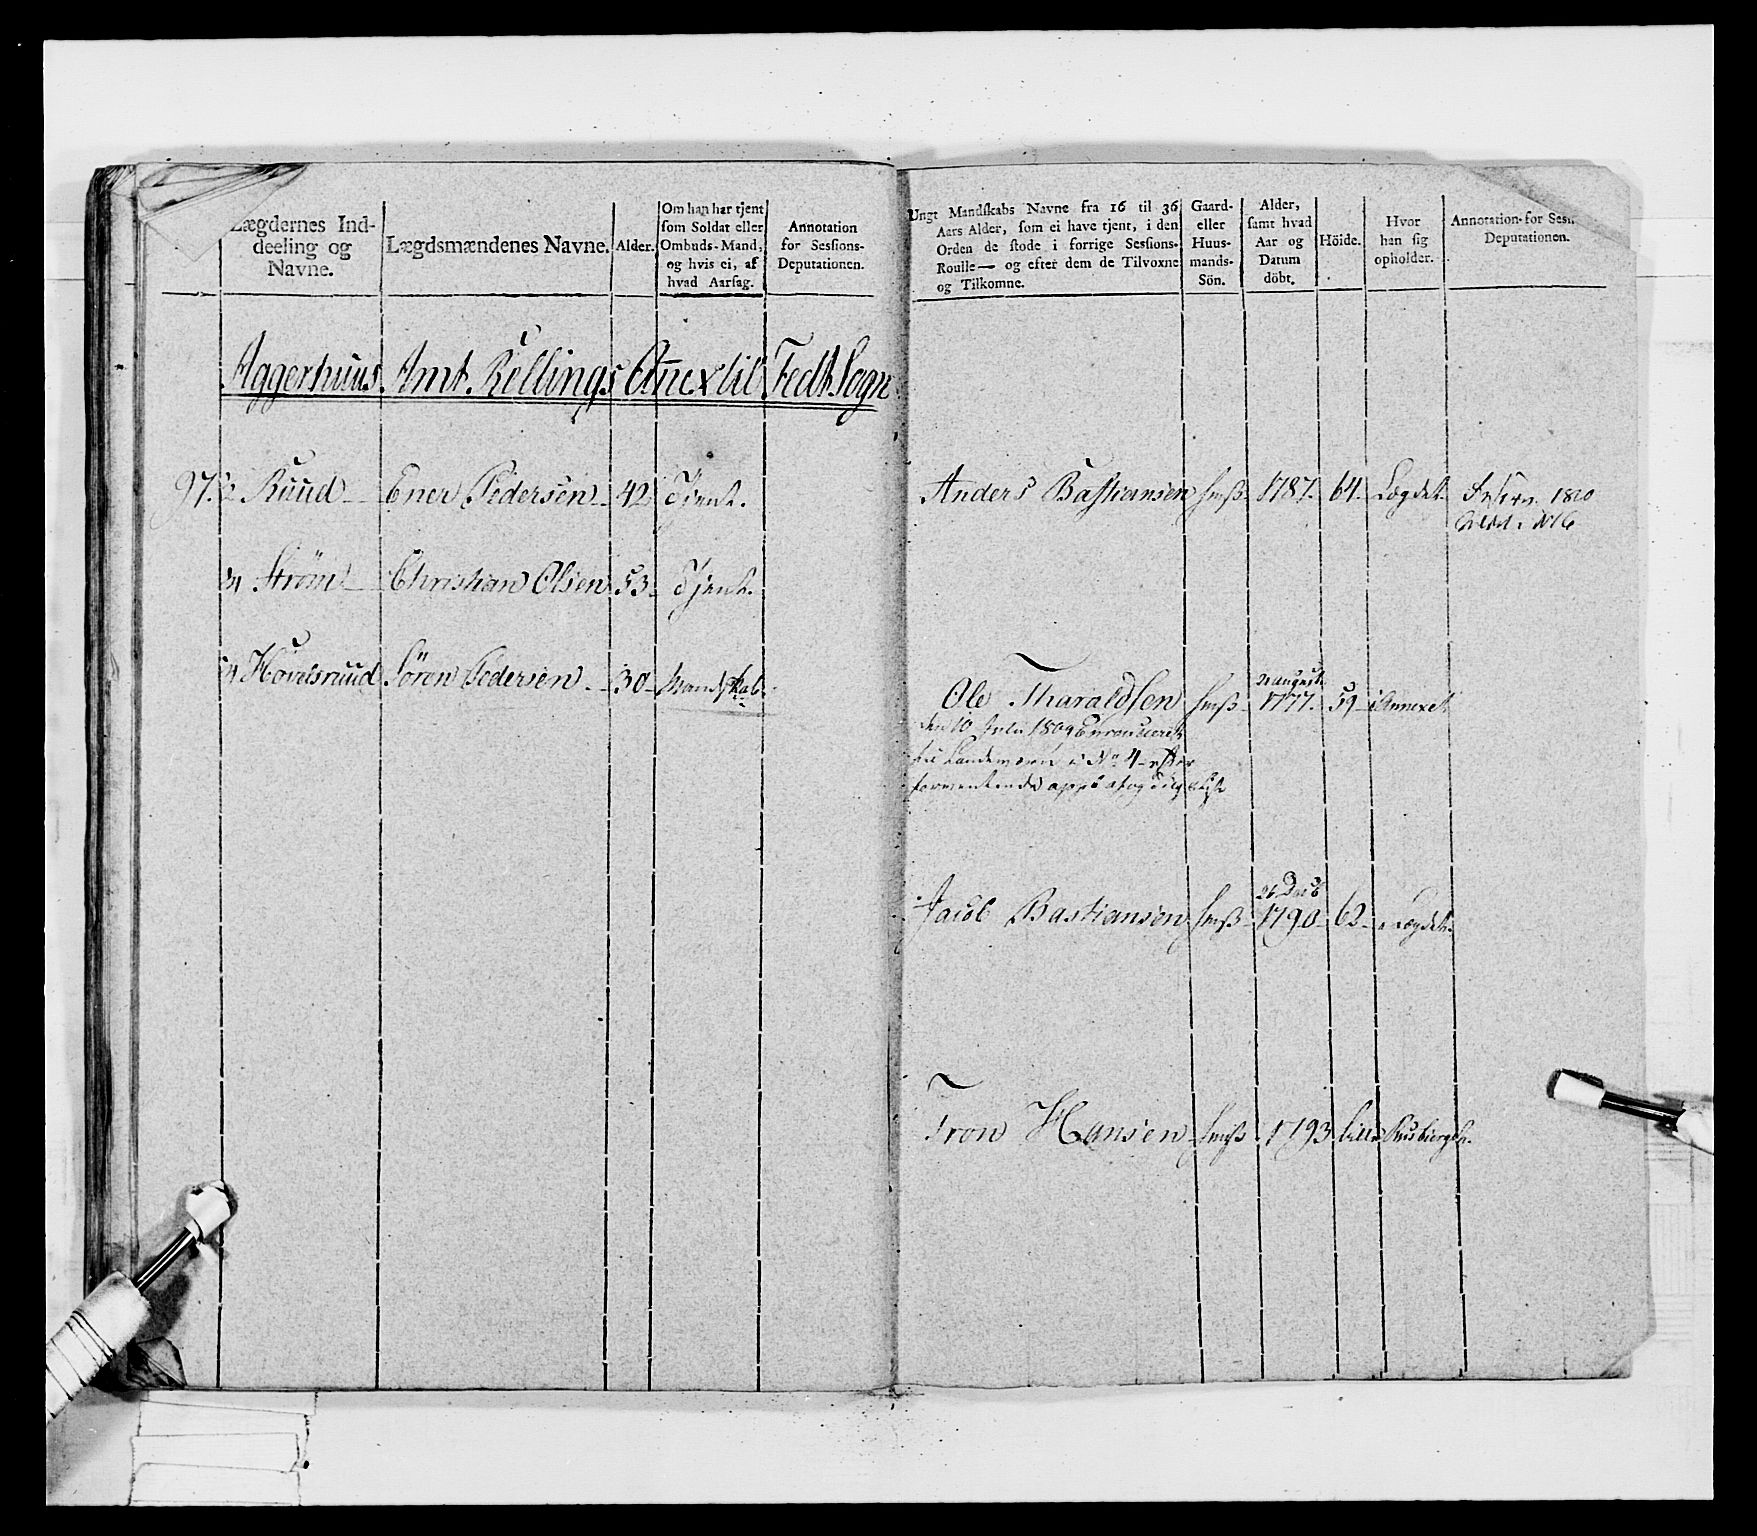 Lægdernes Ind-
deeling og
Navne.
Lægdsmændenes Navne.
Alder.
Om han har tjent
som Soldat eller
Ombuds-Mand,
og hvis ei, af
hvad Aarsag.
Annotation
for Sessions-
Deputationen.
Aggerhuus Amt. Kellings Anex til Fedt Sogn
97. ½ Ruud Ener Pedersen 42 Tjent.
Ström Christian Olsen 53 Tjent.
Hovelsruud Sören Pedersen 30 Mandskab
Ungt Mandskabs Navne fra 16 til 36
Aars Alder, som ei have tjent, i den
Orden de stode i forrige Sessions-
Roulle— og efter dem de Tilvoxne
og Tilkomne.
Gaard-
eller
Huus-
mands-
Sön.
Alder,
samt hvad
Aar og
Datum
döbt.
Höide.
Hvor
han sig
opholder.
Annotation for Sess
Deputationen.
Anders Bastiansen hmß 1787. 64 Lægdet 1810
N 6
august
Ole Tharaldsen hmß 1777. 59 i Annexet
den 10 Julii 1809
til Landeværn i No 4 efter
26 Decb
Jacob Bastiansen hmß 1790 62 i Lægdet.
Tron Hansen hmß 1793 lille